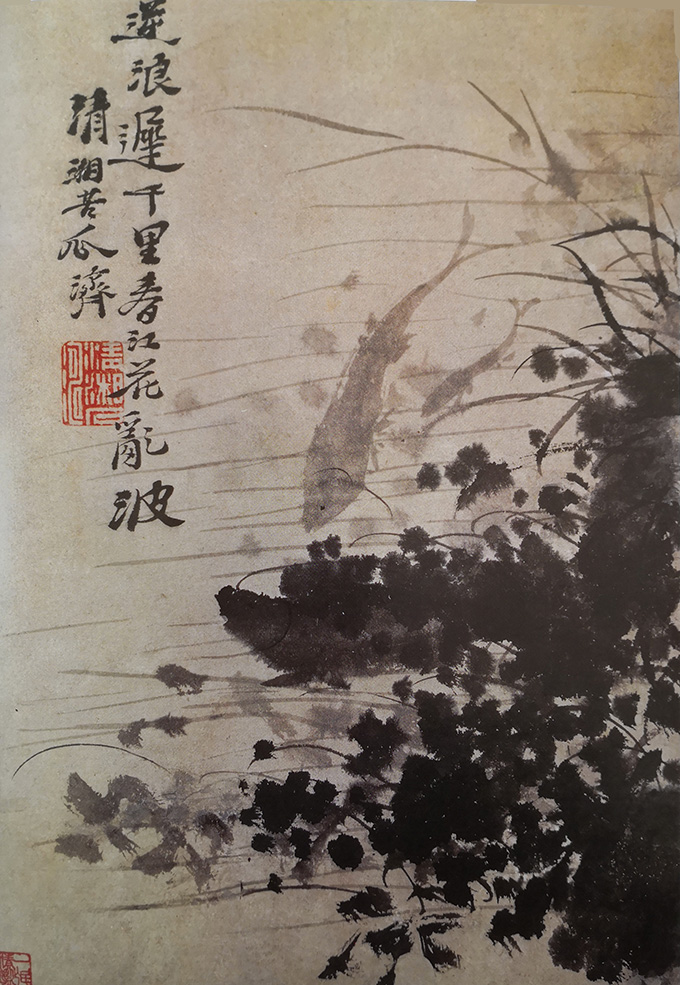 逆浪遲千里春江花亂波
清湘苦瓜濟